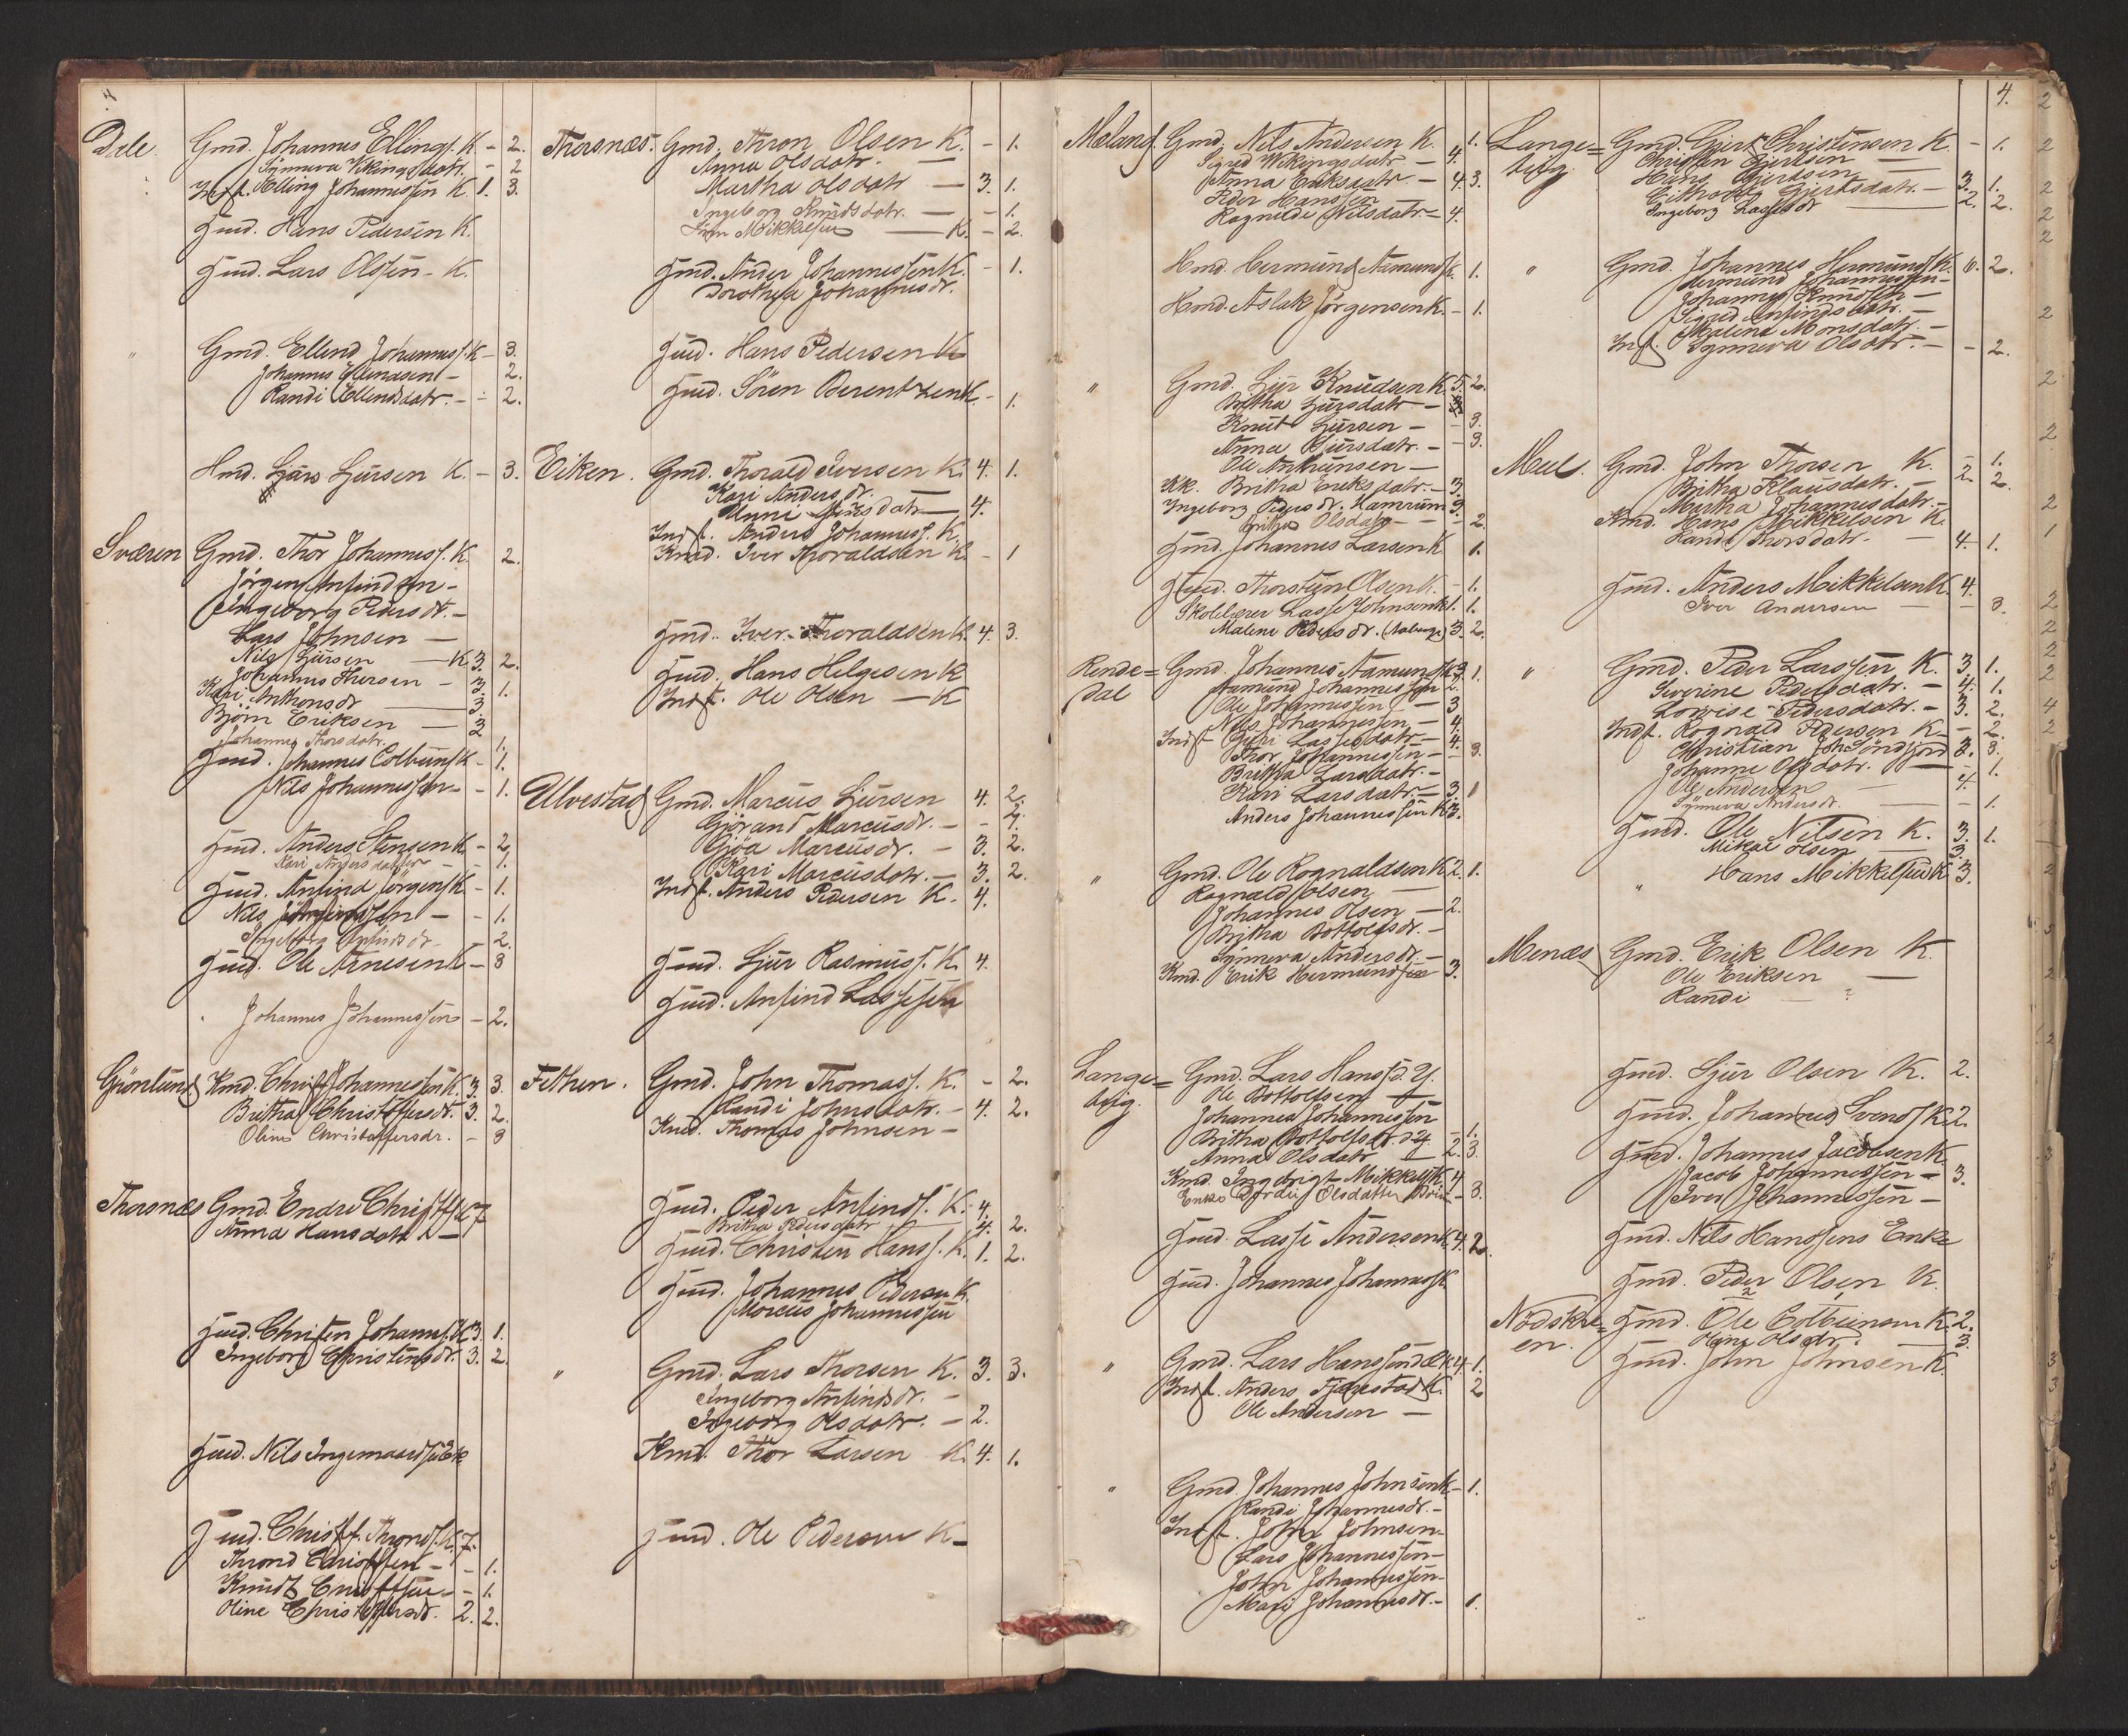 4
Dale. Gmd. Johannes Ellings. K - 2.
Synneva Vikingsdatr. - 2
Indst. Elling Johannessen K. 1. 3.
Hmd. Hans Pedersen K.
Hmd. Lars Olssen - K.
" Gmd. Ellend Johannes. K - 3.
Johannes Ellendsen - 2.
Randi Ellendsdatr. - - 2.
Hmd. Sjurs Sjursen K. - 3.
Sværen Gmd. Thor Johanness. K. 2.
Jörgen Anfindsen -
Ingeborg Pedersdr. -
Lars Johnsen —
Nils Sjursen — K 3. 2.
Johannes Thorsen - 3. 1.
Kari Anthonsdr — 3
Björn Eriksen — 3
Johannes Thorsdatr. 2 1.
Hmd. Johannes Colbens K - 1.
Nils Johannessen - - 1.
Hmd. Anders Stensen K - 2
Kari Andersdatter - - 1.
Hmd. Anfind Jörgens K - 1.
Nils Anfindsen - - 1.
Ingeborg Anfindsdr - 2.
Hmd. Ole Arnesen K - 3
Johannes Johannessen - 2.
Grönlund Kmd. Christ. Johannessen K. 3 3
Britha Christoffersdr. 3. 2.
Oline Christoffersdr. - 3
Thorsnæs Gmd. Endre Christoff K 7
Anna Hansdatr —
Hmd. Christen Johanns. K 3. 1.
Ingeborg Christensdr. 3. 2.
Hmd. Nils Ingemaards Enk
Hmd. Christf. Thronds. K. 7.
Thrond Christoffsen - - 1.
Knudt Christoffsen - - 1.
Oline Christoffersdr. 2. 2.
Thorsnæs. Gmd. Thron Olsen K. - 1.
Anna Olsdatr. —
Martha Olsdatr — 3. 1.
Ingeborg Knudsdatr. — - 1.
Mikkelsen — K. - 2.
Hmd. Ander Johannessen K. - 1.
Dorothea Johannesdr.
Hmd. Hans Pedersen K
Hmd. Sören Berentzen K. - 1.
Eiken. Gmd. Thorald Iversen K. 4. 1.
Kari Andersdr.
Unni datr — 4.
Indst. Anders Johanness. K.
Kmd. Iver Thoraldsen K - 1
Hmd. Iver Thoraldsen K. 4. 3.
Hmd. Hans Helgesen K
Indst. Ole Olsen — K
Ulvestad Gmd. Marcus Sjursen 4. 2.
Gjörand Marcusdr. - - 4.
Gjöa Marcusdr. - 3. 2.
Kari Marcusdatr. - 3. 2.
Indst. Anders Pedersen K. 4.
Hmd. Sjur Rasmuss. K. 4.
Hmd. Anfind Lasssen
Fethen. Gmd. John Thomass. K. - 2.
Randi Johnsdatr. - 4. 2.
Kmd. Thomas Johnsen -
Hmd. Peder Anfinds. K. 4.
Britha Pedersdatr — 4. 2.
Hmd. Christen Hanss. K. 1. 2.
Hmd. Johannes Pedersen K.
Marcus Johannessen
" Gmd. Lars Thorsen K. 3. 3.
Ingeborg Anfindsdr. -
Ingeborg Olsdatr. - 2.
Kmd. Thor Larsen K. 4. 1.
Hmd. Ole Pedersen K -
4.
Meland. Gmd. Nils Andersen K. 1.
Sigrid Wikingsdatr - 4.
Anna Eriksdatr - 4. 3.
Peder Hanssen
Ragnilde Nilsdatr - 4.
Hmd. Hermund Aamunds K. 1.
Hmd. Aslak Jörgensen K. - 1.
" Gmd. Sjur Knudsen K. 5. 2.
Britha Sjursdatr - 3
Knut Sjursen - - 3.
Anna Sjursdatr. - - 3.
Ole Anthunsen —
Kk. Britha Eriksdatr. - 3.
Ingeborg Pedersdr. Hamrum 3.
Olsdatr - - 2.
Hmd. Johannes Larsen K 1.
Hmd. Thorsten Olsen K. - 1.
Skolelærer Lasse Johnsen K 1. 1.
Malene Pedersdr. 3. 2.
Rende=
dal Gmd. Johannes Aamunds K 3. 1.
Aamund Johannessen 2.
Ole Johannessen - 3
Nils Johannessen - 4.
Indst. Guri Lassesdatr - 4.
Thor Johannessen - - 3.
Britha Larsdatr. -
Kari Larsdatr. - 3. 1
Anders Johannessen K 3.
" Gmd. Ole Rognaldsen K 2. 1.
Rognald Olsen —
Johannes Olsen - 2.
Britha Bottolfsdr. -
Synneva Andersdr. -
Kmd. Erik Hermundsen 3.
Lange=
teig. Gmd. Lars Hanss. d. y.
Ole Bottolfsen —
Johannes Johannessen
Britha Bottolfsdr. d. y. - 1.
Anna Olsdatr — 2. 3.
Kmd. Ingebrigt Mikkels K 4
Enke Gjordie Olsdatter - 3.
Hmd. Lasse Andersen K 4. 2.
Hmd. Johannes Johannes K.
" Gmd. Lars Hanssen d. Æ K. 4. 1.
Indst. Anders Fjærestad K. 2
Ole Andersen —
" Gmd. Johannes Johnsen K - 1.
Randi Johannesdr. -
Indst. John Johnsen -
Lars Johannessen -
John Johannessen -
Mari Johannesdr. - 1.
Lange=
teig. Gmd. Gjert Christensen K. - 1.
Christen Gjertsen —
Hans Gjertsen —
Gjertsdatr. - 3. 1.
Ingeborg Lassesdr — 2. 2.
" Gmd. Johannes Hermunds K. 6. 2.
Hermund Johannessen -
Johannes Knudsen -
Sigrid Anfindsdatr. -
Malena Monsdatr. -
Indst. Synneva Olsdatr. - - 2.
Meel. Gmd. John Thorsen K. - 1.
Britha Klausdatr. - 2. 2.
Martha Johannesdatr. -
Kmd. Hans Mikkelsen K.
Randi Thorsdatr. — 4. 1.
Hmd. Anders Mikkelsen K. 4.
Iver Andersen — - 3.
" Gmd. Peder Larssen K. 3. 1.
Severine Pedersdatr. - 4. 1.
Lovise Pedersdatr. - 3. 2.
Indst. Rognald Pedersen K - - 2.
Christian Joh. Söndfjord 3. 3.
Johanne Olsdatr. — - 1.
Ole Andersen — 4.
Synneva Andersdr. — - 1.
Hmd. Ole Nilsen K. 3. 1.
Mikal Olsen — 3.
" Hans Mikkelsen K 3.
Menæs Gmd. Erik Olsen K.
Ole Eriksen —
Randi — ?
Hmd. Sjur Olsen K. 2.
Hmd. Johannes Svends K. 2.
Hmd. Johannes Jacobsen K.
Jacob Johannessen - 3.
Iver Johannessen -
Hmd. Nils Hanssens Enke
Hmd. Peder Olsen K.
Nödskre=
en. Hmd. Ole Colbeinsen K. 2.
Oline Olsdr. — 3.
Hmd. John Johnsen K.